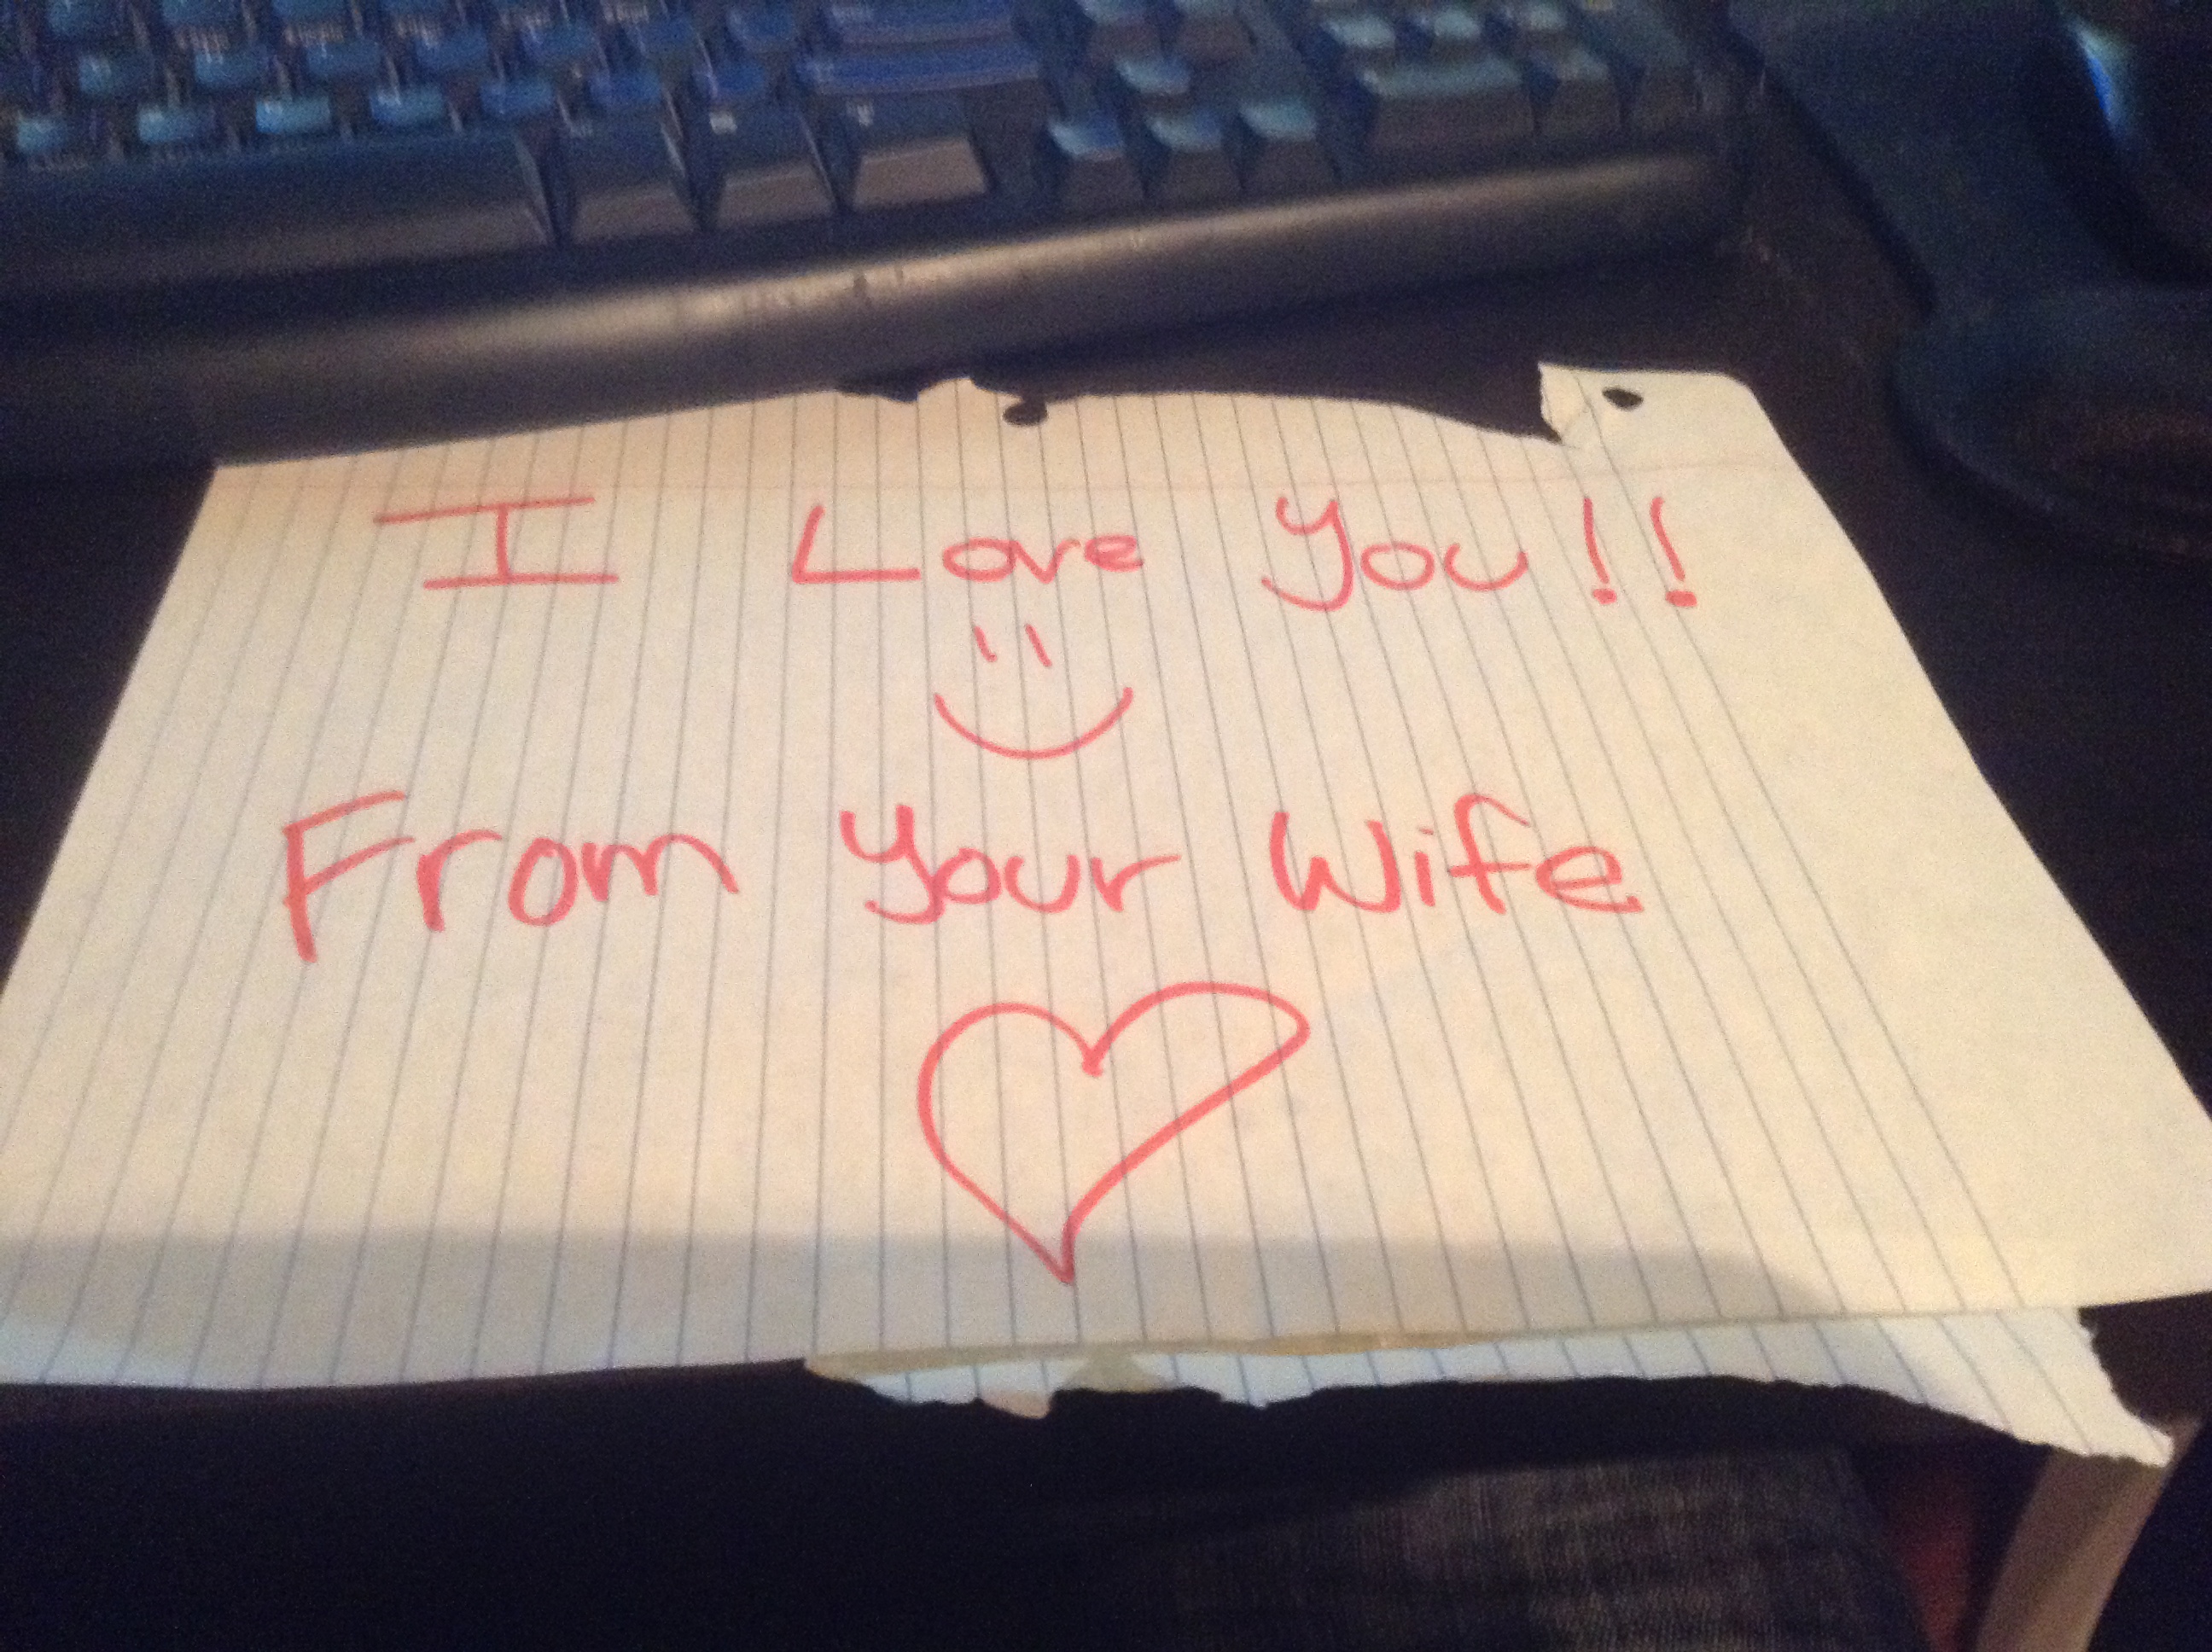 I Love You!!
From Your Wife